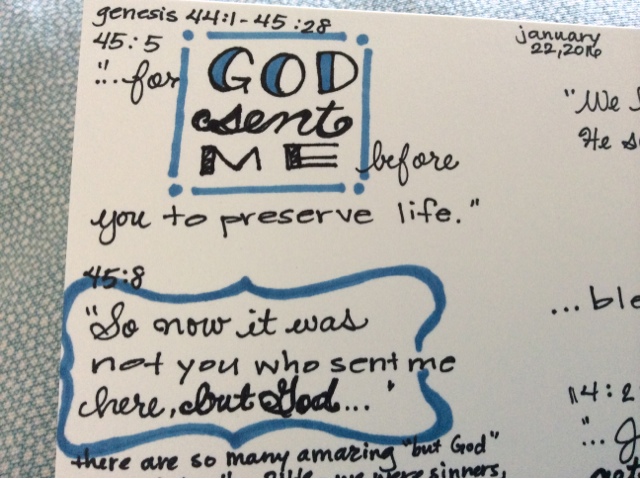 genesis 44:1-45:28
45:5
"... for GOD
sent
ME before
you to preserve life."
45:8
"So now it was
not you who sent me
here, but God... '
there are so many amazing "but God"
we were sinners,
january
22, 2016
"We
He
... ble
14:2
"...